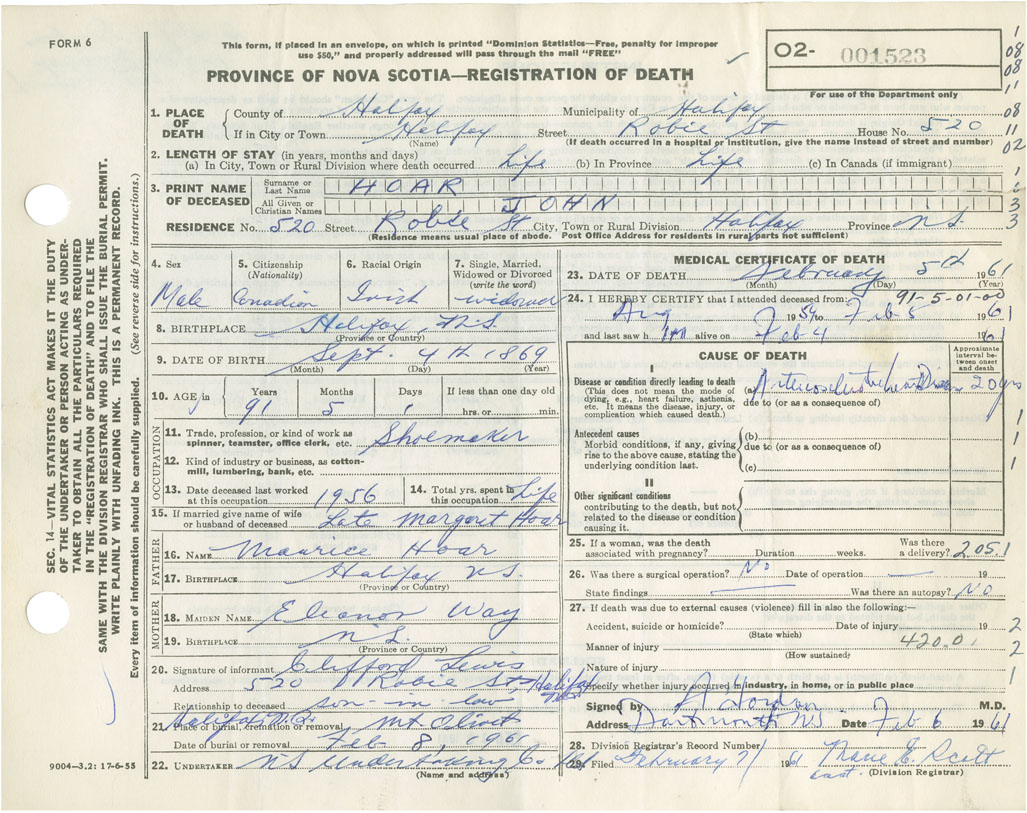 FORM 6
This form, if placed in an envelope, on which is printed "Dominion Statistics—Free, penalty for improper
use $50," and properly addressed will pass through the mail "FREE"
PROVINCE OF NOVA SCOTIA—REGISTRATION OF DEATH
O2- 001523
For use of the Department only
1. PLACE OF DEATH County of Halifax Municipality of Halifax
If in City or Town Halifax Street Robie St House No. 520
(Name) (If death occurred in a hospital or institution, give the name instead of street and number)
2. LENGTH OF STAY (in years, months and days)
(a) In City, Town or Rural Division where death occurred Life (b) In Province Life (c) In Canada (if immigrant)
3. PRINT NAME OF DECEASED Surname or Last Name HOAR
All Given or Christian Names JOHN
RESIDENCE No. 520 Street Robie St City, Town or Rural Division Halifax Province N.S.
(Residence means usual place of abode. Post Office Address for residents in rural parts not sufficient)
4. Sex Male
5. Citizenship (Nationality) Canadian
6. Racial Origin Irish
7. Single, Married, Widowed or Divorced (write the word) widower
8. BIRTHPLACE Halifax, N.S.
(Province or Country)
9. DATE OF BIRTH Sept. 4th 1869
(Month) (Day) (Year)
10. AGE Years 91 Months 5 Days 1 If less than one day old
hrs. or min.
OCCUPATION
11. Trade, profession, or kind of work as spinner, teamster, office clerk, etc. Shoemaker
12. Kind of industry or business, as cotton-mill, lumbering, bank, etc.
13. Date deceased last worked at this occupation 1956
14. Total yrs. spent in this occupation Life
15. If married give name of wife or husband of deceased Late Margaret Hoar
FATHER
16. NAME Maurice Hoar
17. BIRTHPLACE Halifax N.S.
(Province or Country)
MOTHER
18. MAIDEN NAME Eleanor Way
19. BIRTHPLACE N.S.
(Province or Country)
20. Signature of informant Clifford Lewis
Address 520 Robie St, Halifax N.S.
Relationship to deceased son-in law
21. Place of burial, cremation or removal Mt Olivet Halifax N.S.
Date of burial or removal Feb 8, 1961
22. UNDERTAKER N S Undertaking Co
(Name and address)
MEDICAL CERTIFICATE OF DEATH
23. DATE OF DEATH February 5th 1961
(Month) (Day) (Year)
91-5-01-00
24. I HEREBY CERTIFY that I attended deceased from
Aug 1954 to Feb 5 1961
and last saw him alive on Feb 4 1961
CAUSE OF DEATH
Approximate interval between onset and death
I
Disease or condition directly leading to death
(This does not mean the mode of dying, e.g., heart failure, asthenia, etc. It means the disease, injury, or complication which caused death.)
(a) Arteriosclerotic heart Disease 20 yrs
due to (or as a consequence of)
Antecedent causes
Morbid conditions, if any, giving rise to the above cause, stating the underlying condition last.
(b)
due to (or as a consequence of)
(c)
II
Other significant conditions
contributing to the death, but not related to the disease or condition causing it.
25. If a woman, was the death associated with pregnancy? Duration weeks. Was there a delivery? 205.1
26. Was there a surgical operation? No Date of operation 19
State findings Was there an autopsy? No
27. If death was due to external causes (violence) fill in also the following:—
Accident, suicide or homicide? Date of injury 19
(State which)
Manner of injury 420.0
(How sustained)
Nature of injury
Specify whether injury occurred in industry, in home, or in public place
Signed by A Hordan M.D.
Address Dartmouth N.S Date Feb 6 1961
28. Division Registrar's Record Number
29. Filed February 7/ 1961
(Division Registrar)
9004—3.2: 17-6-55
SEC. 14—VITAL STATISTICS ACT MAKES IT THE DUTY
OF THE UNDERTAKER OR PERSON ACTING AS UNDER-
TAKER TO OBTAIN ALL THE PARTICULARS REQUIRED
IN THE "REGISTRATION OF DEATH" AND TO FILE THE
SAME WITH THE DIVISION REGISTRAR WHO SHALL ISSUE THE BURIAL PERMIT.
WRITE PLAINLY WITH UNFADING INK. THIS IS A PERMANENT RECORD.
Every item of information should be carefully supplied. (See reverse side for instructions.)